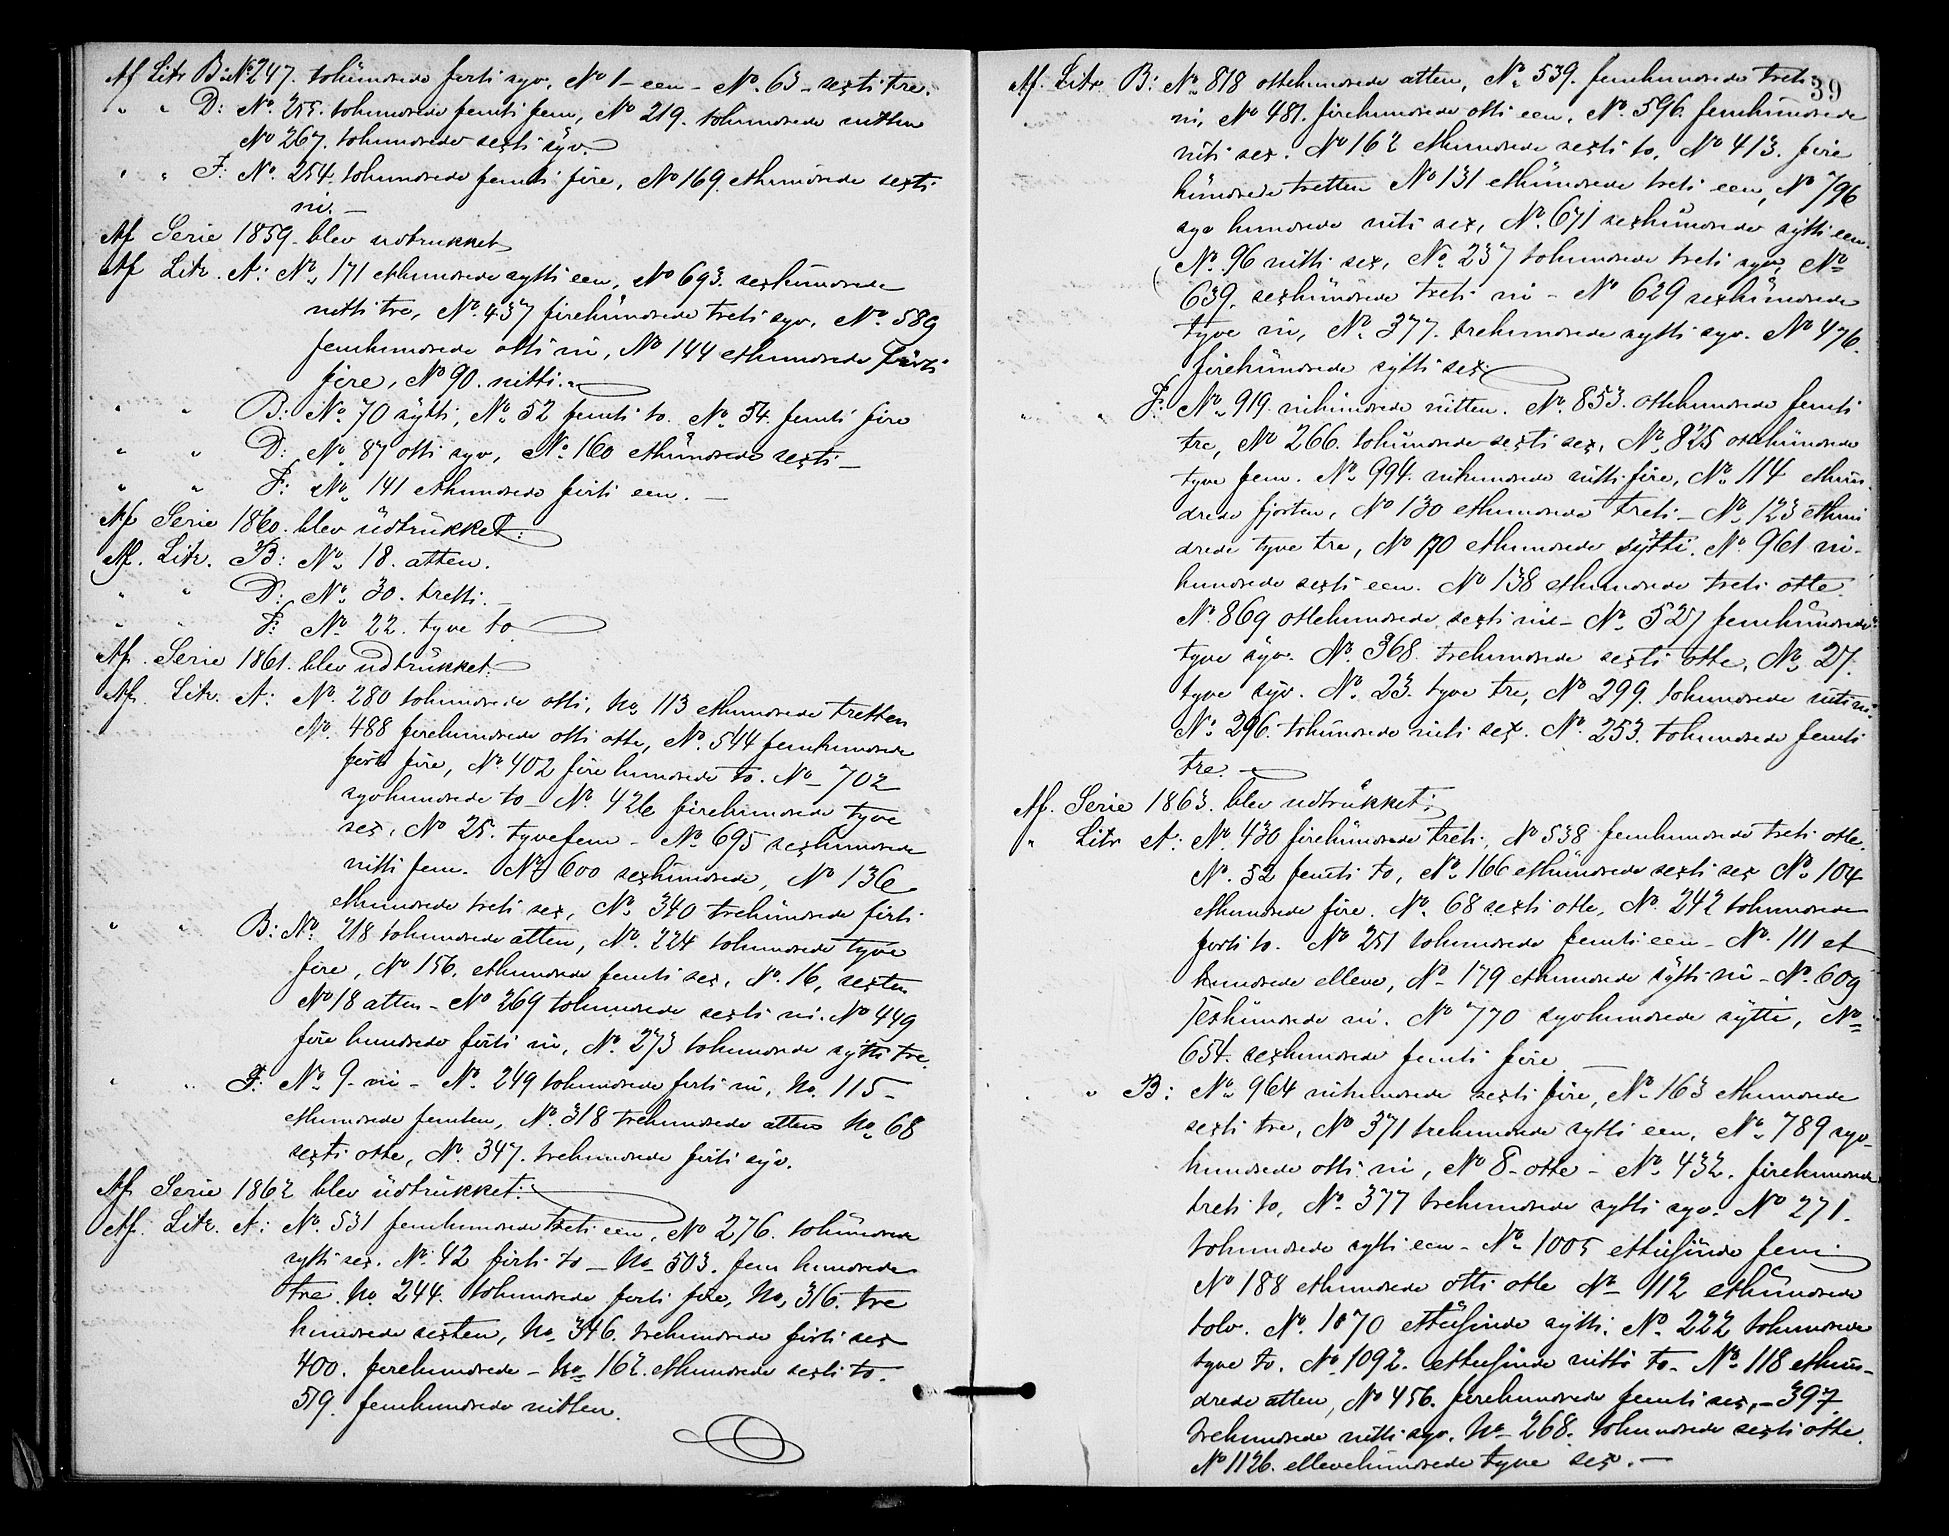 Af Litr B: No 247. tohundrede forti syv, No 1 – een – No. 63 – sexti tre.
" " D: No. 255. tohundrede femti fem, No 219. tohundrede nitten
No 267. tohundrede sexti syv.
" " F: No. 254. tohundrede femti fire, No 169. ethundrede sexti
ni. –
Af Serie 1859. blev udtrukket
Af Litr. A: No. 171 ethundrede sytti een, No 693. sexhundrede
nitti tre, No. 437 firehundrede treti syv, No. 589
femhundrede otti ni, No 144 ethundrede förti
fire, No 90. nitti. –
" " B: No. 70 sytti, No. 52 femti to. No. 54. femti fire
" " D: No. 87 otti syv, No. 160 ethundrede sexti –
" " F: No. 141 ethundrede firti een. –
Af Serie 1860. blev udtrukket:
Af. Litr. B: No. 18. atten.
" " D: No. 30. tretti.
" " F: No. 22. tyve to.
Af. Serie 1861. blev udtrukket:
Af. Litr. A: No. 280 tohundrede otti, No. 113 ethundrede tretten
No. 488 firehundrede otti otte, No. 544 femhundrede
förti fire, No. 402 fire hundrede to. No – 702
syvhundrede to – No. 426 firehundrede tyve
sex, No 25. tyvefem – No. 695 sexhundrede
nitti fem. No 600 sexhundrede, No 136
ethundrede treti sex, No. 340 trehundrede firti.
" " B: No. 218 tohundrede atten, No. 224 tohundrede tyve
fire, No 156. ethundrede femti sex, No. 16, sexten
No 18 atten – No 269 tohundrede sexti ni. No 449
fire hundrede firti ni, No. 273 tohundrede sytti tre.
" " F: No. 9 – ni – No. 249 tohundrede forti ni, No. 115 –
ethundrede femten, No. 318 trehundrede atten No. 68
sexti otte, No. 347. trehundrede firti syv.
Af Serie 1862 blev udtrukket:
Af. Litr. A: No. 531 femhundrede treti een, No 276. tohundrede
sytti sex. No. 42 firti to – No. 503. fem hundrede
tre No. 244. tohundrede forti fire, No. 316. tre
hundrede sexten, No. 346. trehundrede firti sex
400. firehundrede – No. 162. ethundrede sexti to.
519. femhundrede nitten.
39
Af. Litr. B: No. 818 ottehundrede atten, No. 539. femhundrede treti
ni, No 481. firehundrede otti een, No. 596. femhundrede
niti sex. No 162 ethundrede sexti to, No 413. fire
hundrede tretten No 131 ethundrede treti een, No 796
syv hundrede niti sex, No. 671 sexhundrede sytti een.
No. 96 nitti sex, No. 237 tohundrede treti syv, No
639. sexhundrede treti ni – No 629 sexhundrede
tyve ni, No. 377. trehundrede sytti syv. No 476.
firehundrede sytti sex.
" " F: No. 919. nihundrede nitten. No. 853. ottehundrede femti
tre, No 266. tohundrede sexti sex, No. 825 ottehundrede
tyve fem. No. 994. nihundrede nitti fire, No. 114 ethun-
drede fjorten, No 130 ethundrede treti – No. 123 ethun
drede tyve tre, No 170 ethundrede sytti. No. 961 ni-
hundrede sexti een. No 138 ethundrede treti otte.
No. 869 ottehundrede sexti ni – No. 527 femhundrede
tyve syv. No. 368. trehundrede sexti otte, No. 27.
tyve syv. No. 23. tyve tre, No 299. tohundrede niti ni.
No. 296. tohundrede niti sex. No. 253. tohundrede femti
tre. –
Af. Serie 1863. blev udtrukket:
" Litr A: No. 430 firehundrede treti, No 538 femhundrede treti otte.
No. 52 femti to, No. 166 ethundrede sexti sex No. 104
ethundrede fire. No. 68 sexti otte, No. 242 tohundrede
forti to. No 251 tohundrede femti een – No. 111 et
hundrede elleve, No – 179 ethundrede sytti ni – No. 609
sexhundrede ni. No 770 syvhundrede sytti, No
654. sexhundrede femti fire –
" " B: No. 964 nihundrede sexti fire, No. 163 ethundrede
sexti tre, No 371 trehundrede sytti een, No. 789 syv-
hundrede otti ni, No 8 – otte – No. 432. firehundrede
treti to, No. 377 trehundrede sytti syv. No 271.
tohundrede sytti een – No. 1005 ettusinde fem
No 188 ethundrede otti otte No – 112 ethundrede
tolv. No. 1070 ettusinde sytti. No. 222 tohundrede
tyve to. No. 1092. ettusinde nitti to – No. 118 ethun-
drede atten, No 456. firehundrede femti sex, – 397
trehundrede nitti syv. No – 268. tohundrede sexti otte.
No 1126. ellevehundrede tyve sex. –